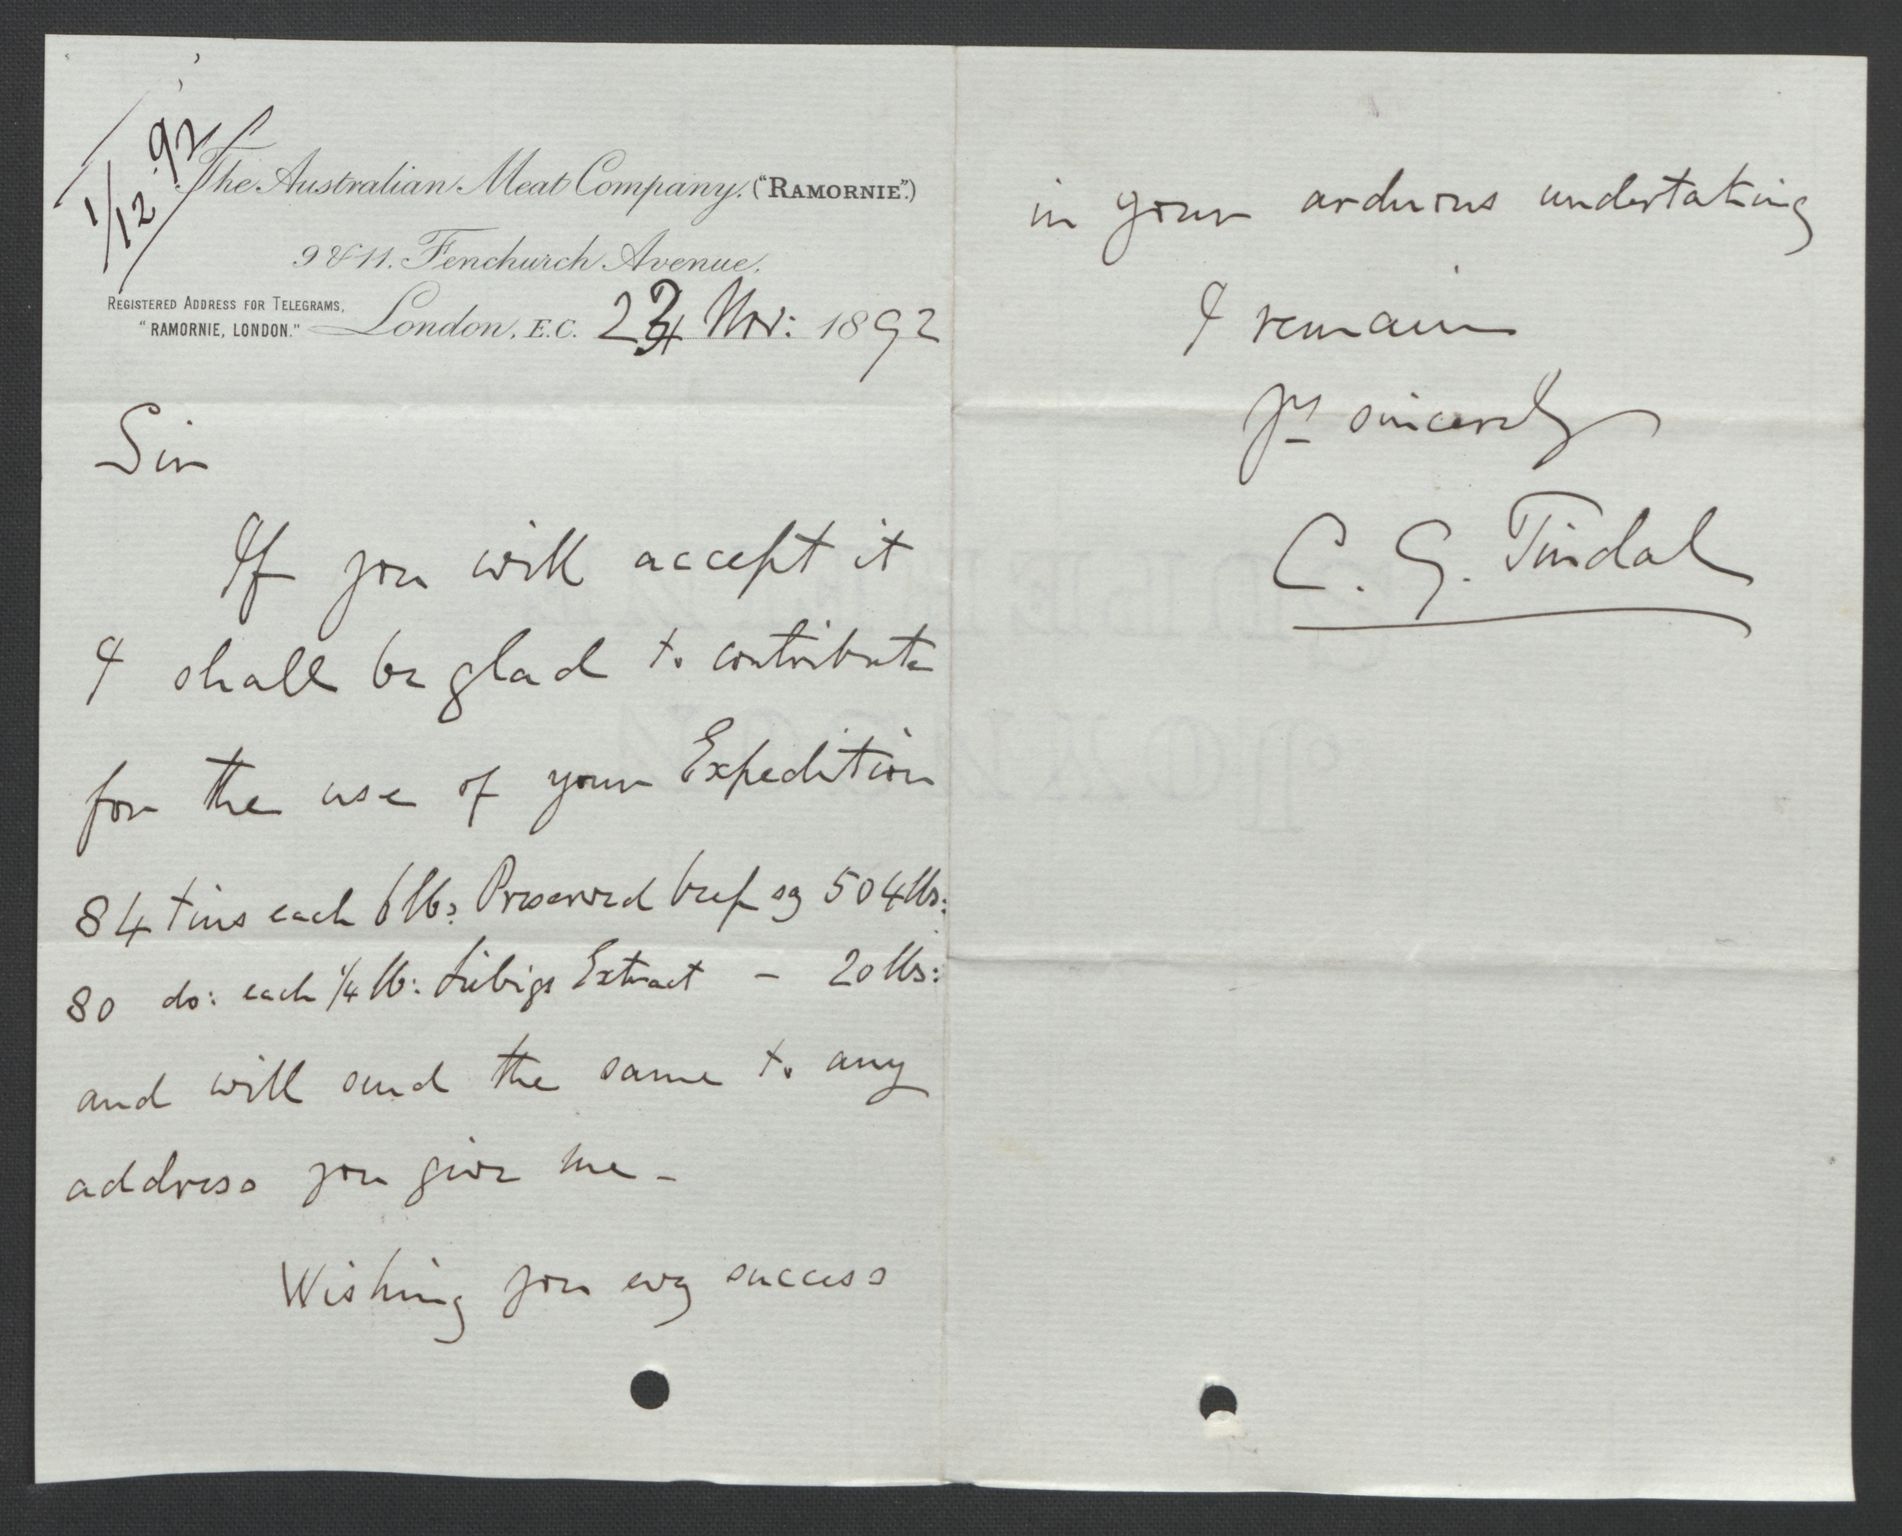 1/12.92
The Australian Meat Company. ("RAMORNIE".)
9 & 11. Fenchurch Avenue.
REGISTERED ADDRESS FOR TELEGRAMS,
"RAMORNIE, LONDON."
London, E.C. Nov: 1892
Sir
If you will accept it
I shall be glad to contribute
for the use of your Expedition
84 tins each 6 lbs: Preserved beef sg 504 lbs:
80 do: each 1/4 lb: Liebigs Extract - 20 lbs:
and will send the same to any
address you give me -
Wishing you evy success
in your arduous undertaking
I remain
Yrs sincerely
C. G. Tindal